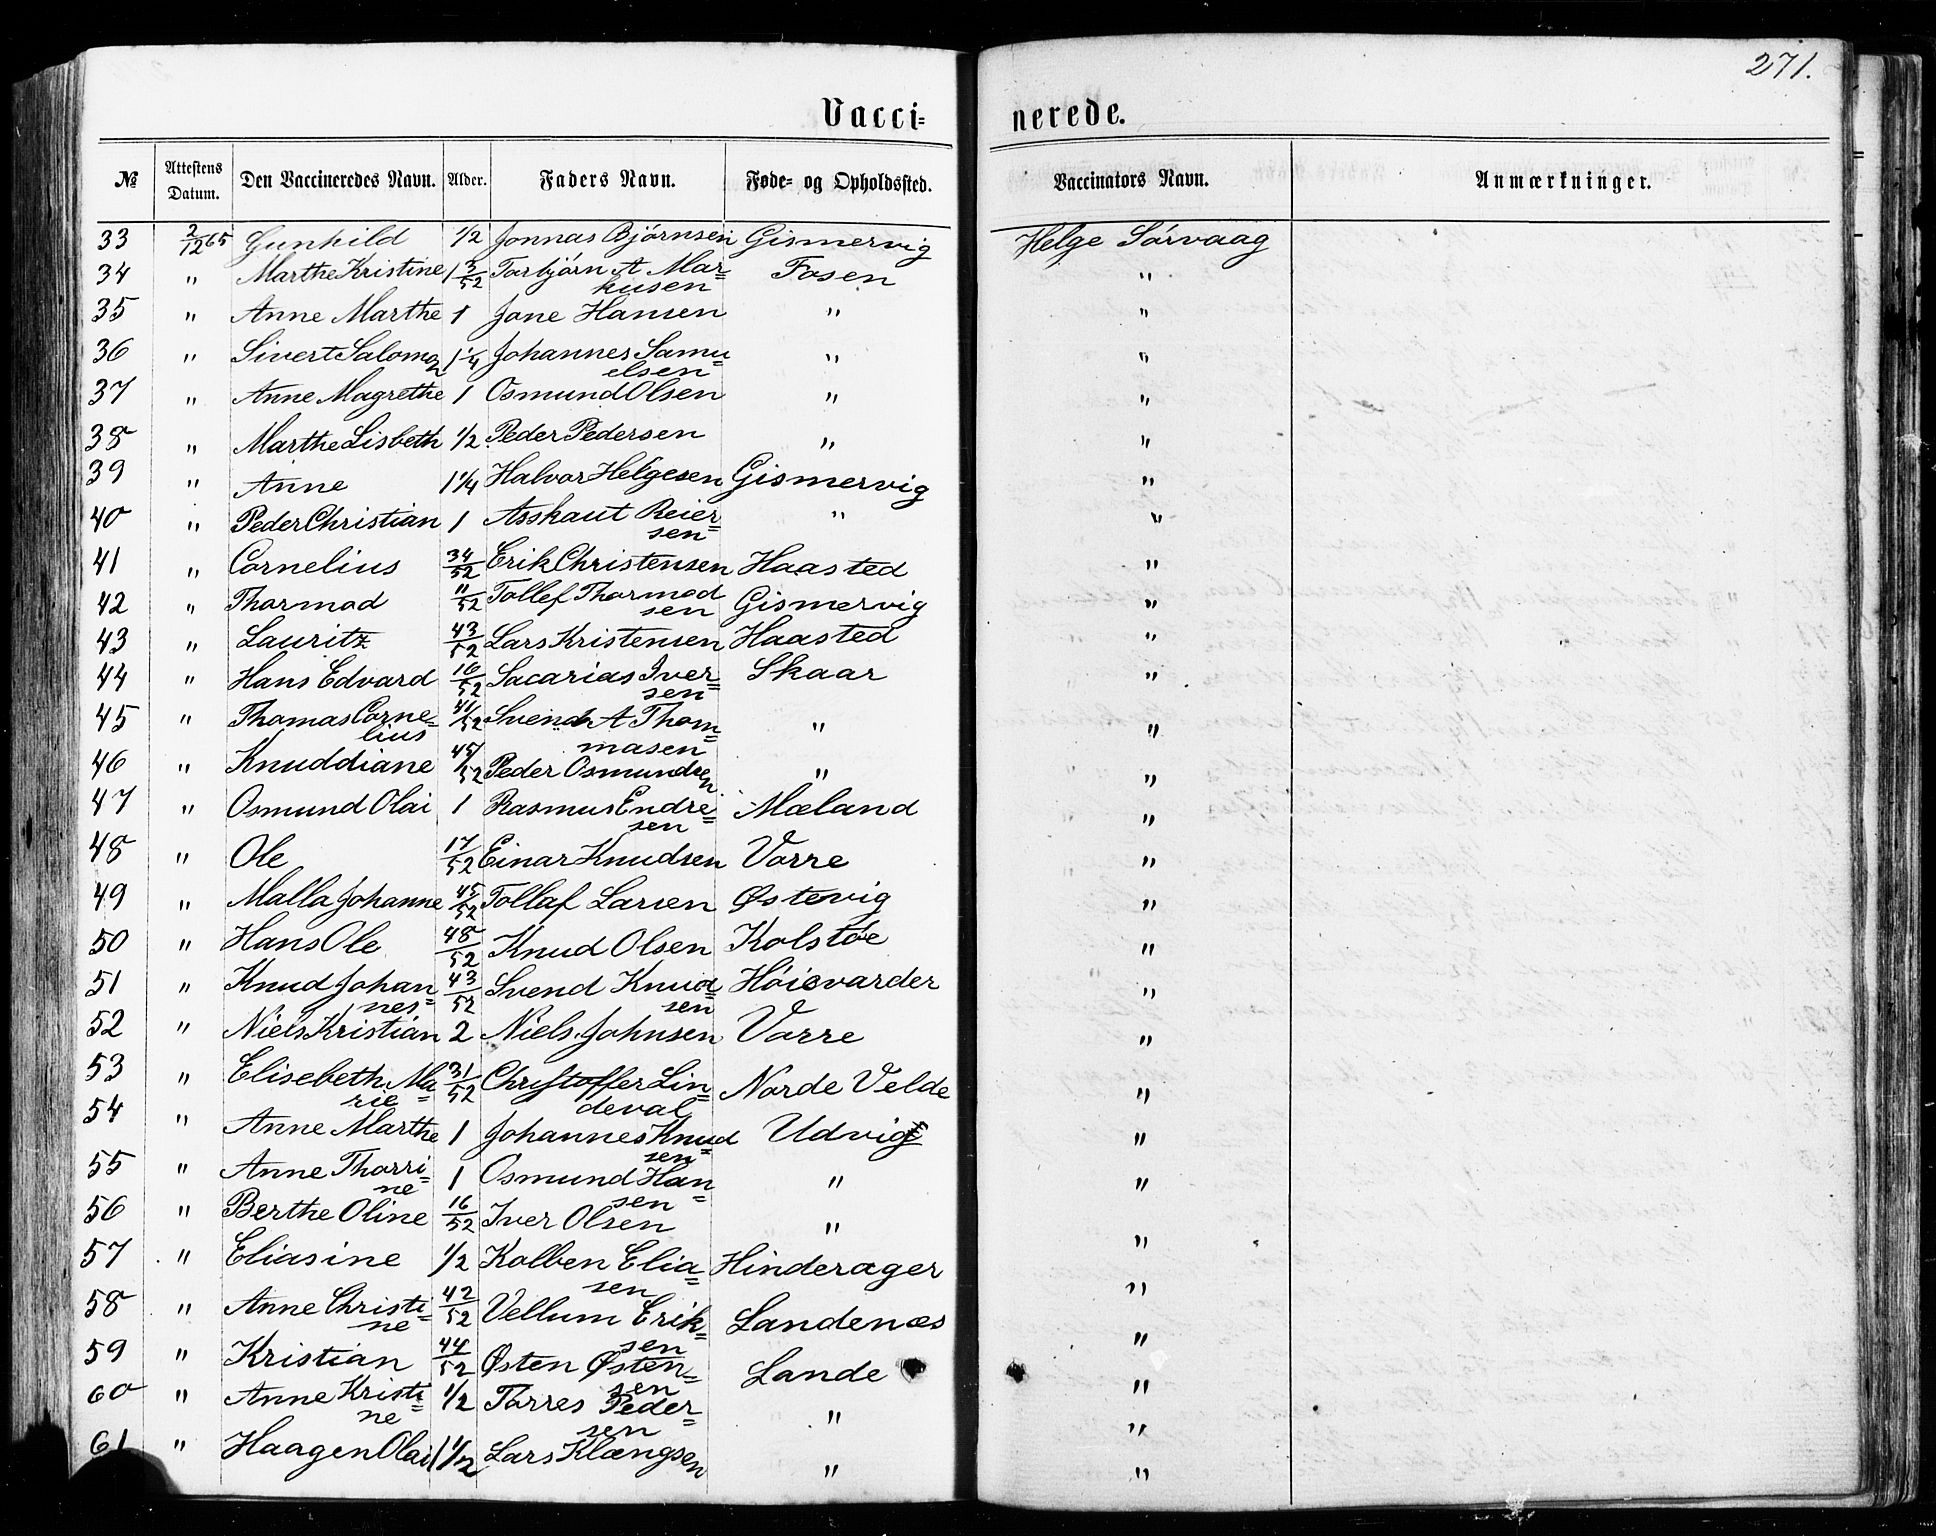 271.
Vacci= nerede.
№ Attestens Datum. Den Vaccineredes Navn. Alder. Faders Navn. Føde- og Opholdssted. Vaccinators Navn. Anmærkninger.
33 2/12 65 Gunhild 1/2 Jonnas Bjørnsen Gismervig Helge Sørvaag
34 " Marthe Kristine 1 3/52 Torbjørn A Mar= Fosen "
kusen
35 " Anne Marthe 1 Jone Hansen " "
36 " Sivert Salomon 1 1/4 Johannes Samu= " "
elsen
37 " Anne Magrethe 1 Osmund Olsen " "
38 " Marthe Lisbeth 1/2 Peder Pedersen " "
39 " Anne 1 1/4 Halvor Helgesen Gismervig "
40 " Peder Christian 1 Asskaut Reier= " "
sen
41 " Cornelius 34/52 Erik Christensen Haasted "
42 " Thormod 11/52 Tollef Thormod Gismervig "
sen
43 " Lauritz 43/52 Lars Kristensen Haasted "
44 " Hans Edvard 16/52 Sacarias Iver= Skaar "
sen
45 " Thomas Corne= 41/52 Svend A Thom= " "
lius masen
46 " Knuddiane 45/52 Peder Osmundsen " "
47 " Osmund Olai 1 Rasmus Endre= Mæland "
sen
48 " Ole 17/52 Einar Knudsen Vorre "
49 " Malla Johanne 45/52 Tollaf Larsen Østevig "
50 " Hans Ole 48/52 Knud Olsen Kolstøe "
51 " Knud Johan 43/52 Svend Knud= Høievarder "
nes= sen
52 " Niels Kristian 2 Niels Johnsen Vorre "
53 " Elisebeth Ma 31/52 Christoffer Lin= Norde Velde "
rie= deval
54 " Anne Marthe 1 Johannes Knud Udvig "
sen=
55 " Anne Thorri= 1 Osmund Han= " "
ne sen
56 " Berthe Oline 16/52 Iver Olsen " "
57 " Eliasine 1/2 Kolben Elia= Hinderager "
sen
58 " Anne Christi= 42/52 Vellum Erik= Landenæs "
ne sen
59 " Kristian 44/52 Østen Østen= Lande "
sen
60 " Anne Kristi= 1/2 Torres Peder= " "
ne sen
61 " Haagen Olai 1 1/2 Lars Klængsen " "